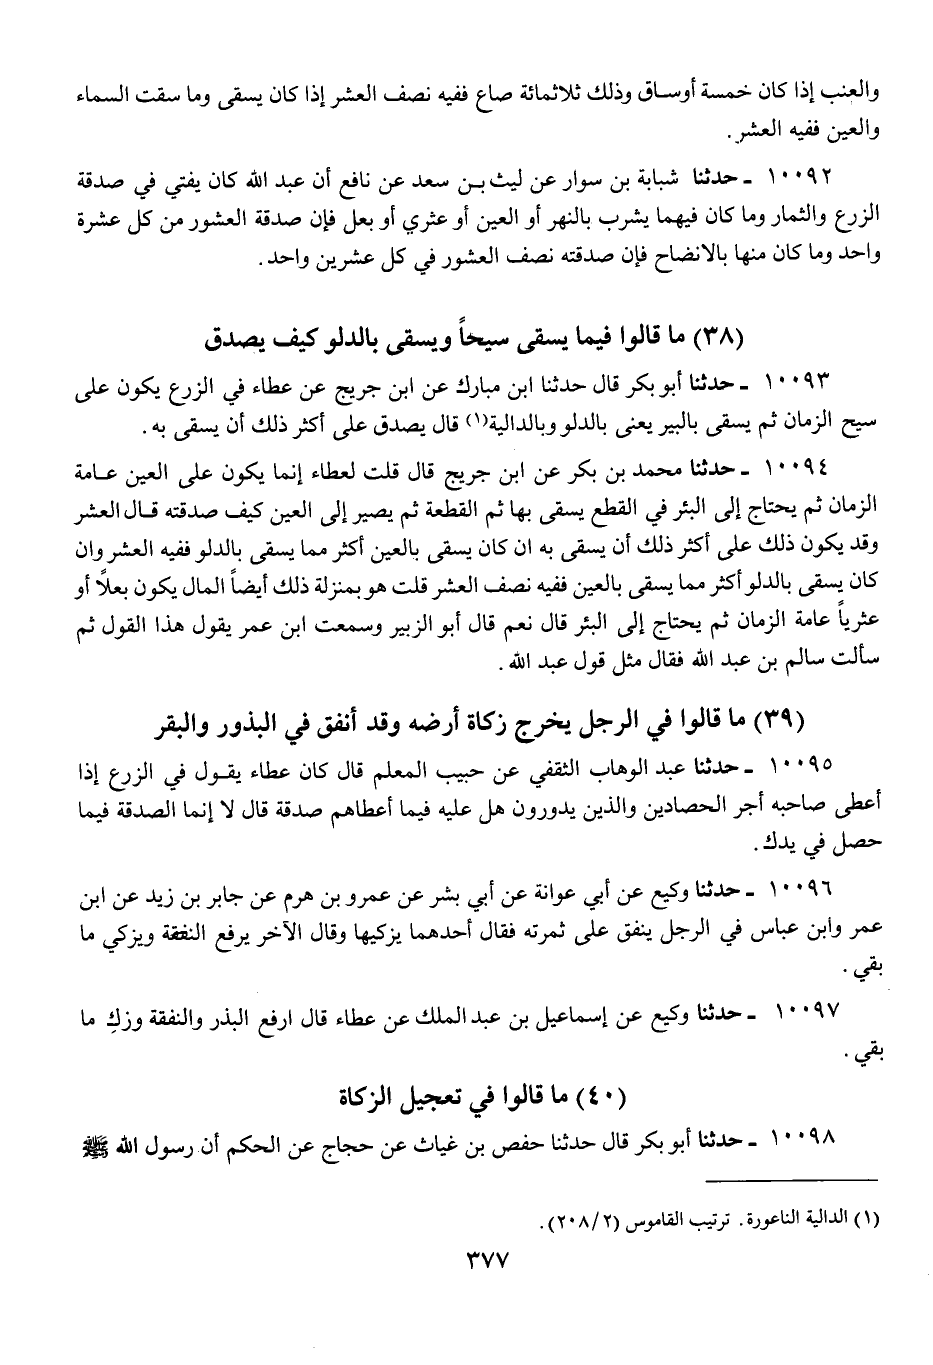 والعنب إذا كان خمسة أوساق وذلك ثلاثمائة صاع ففيه نصف العشر إذا كان يسقى وما سقت السماء
والعين ففيه العشر.
١٠٠٩٢ ـ حدثنا شبابة بن سوار عن ليث بـن سعد عن نافع أن عبد الله كان يفتي في صدقة
الزرع والثمار وما كان فيهما يشرب بالنهر أو العين أو عثري أو بعل فإن صدقة العشور من كل عشرة
واحد وما كان منها بالانضاح فإن صدقته نصف العشور في كل عشرين واحد.
(٣٨) ما قالوا فيما يسقى سيحاً ويسقى بالدلو كيف يصدق
١٠٠٩٣ ـ حدثنا أبو بكر قال حدثنا ابن مبارك عن ابن جريج عن عطاء في الزرع يكون على
سيح الزمان ثم يسقى بالبير يعنى بالدلو وبالدالية(١) قال يصدق على أكثر ذلك أن يسقى به.
١٠٠٩٤ ـ حدثنا محمد بن بكر عن ابن جريج قال قلت لعطاء إنما يكون على العين عامة
الزمان ثم يحتاج إلى البئر في القطع يسقى بها ثم القطعة ثم يصير إلى العين كيف صدقته قال العشر
وقد يكون ذلك على أكثر ذلك أن يسقى به ان كان يسقى بالعين أكثر مما يسقى بالدلو ففيه العشر وان
كان يسقى بالدلو أكثر مما يسقى بالعين ففيه نصف العشر قلت هو بمنزلة ذلك أيضاً المال يكون بعلاً أو
عثرياً عامة الزمان ثم يحتاج إلى البئر قال نعم قال أبو الزبير وسمعت ابن عمر يقول هذا القول ثم
سألت سالم بن عبد الله فقال مثل قول عبد الله.
(٣٩) ما قالوا في الرجل يخرج زكاة أرضه وقد أنفق في البذور والبقر
١٠٠٩٥ ـ حدثنا عبد الوهاب الثقفي عن حبيب المعلم قال كان عطاء يقول في الزرع إذا
أعطى صاحبه أجر الحصادين والذين يدورون هل عليه فيما أعطاهم صدقة قال لا إنما الصدقة فيما
حصل في يدك.
١٠٠٩٦ ـ حدثنا وكيع عن أبي عوانة عن أبي بشر عن عمرو بن هرم عن جابر بن زيد عن ابن
عمر وابن عباس في الرجل ينفق على ثمرته فقال أحدهما يزكيها وقال الآخر يرفع النفقة ويزكي ما
بقي.
١٠٠٩٧ ـ حدثنا وكيع عن إسماعيل بن عبد الملك عن عطاء قال ارفع البذر والنفقة وزكِ ما
بقي.
(٤٠) ما قالوا في تعجيل الزكاة
١٠٠٩٨ ـ حدثنا أبو بكر قال حدثنا حفص بن غياث عن حجاج عن الحكم أن رسول الله ﷺ
(١) الدالية الناعورة. ترتيب القاموس (٢٠٨/٢).
٣٧٧